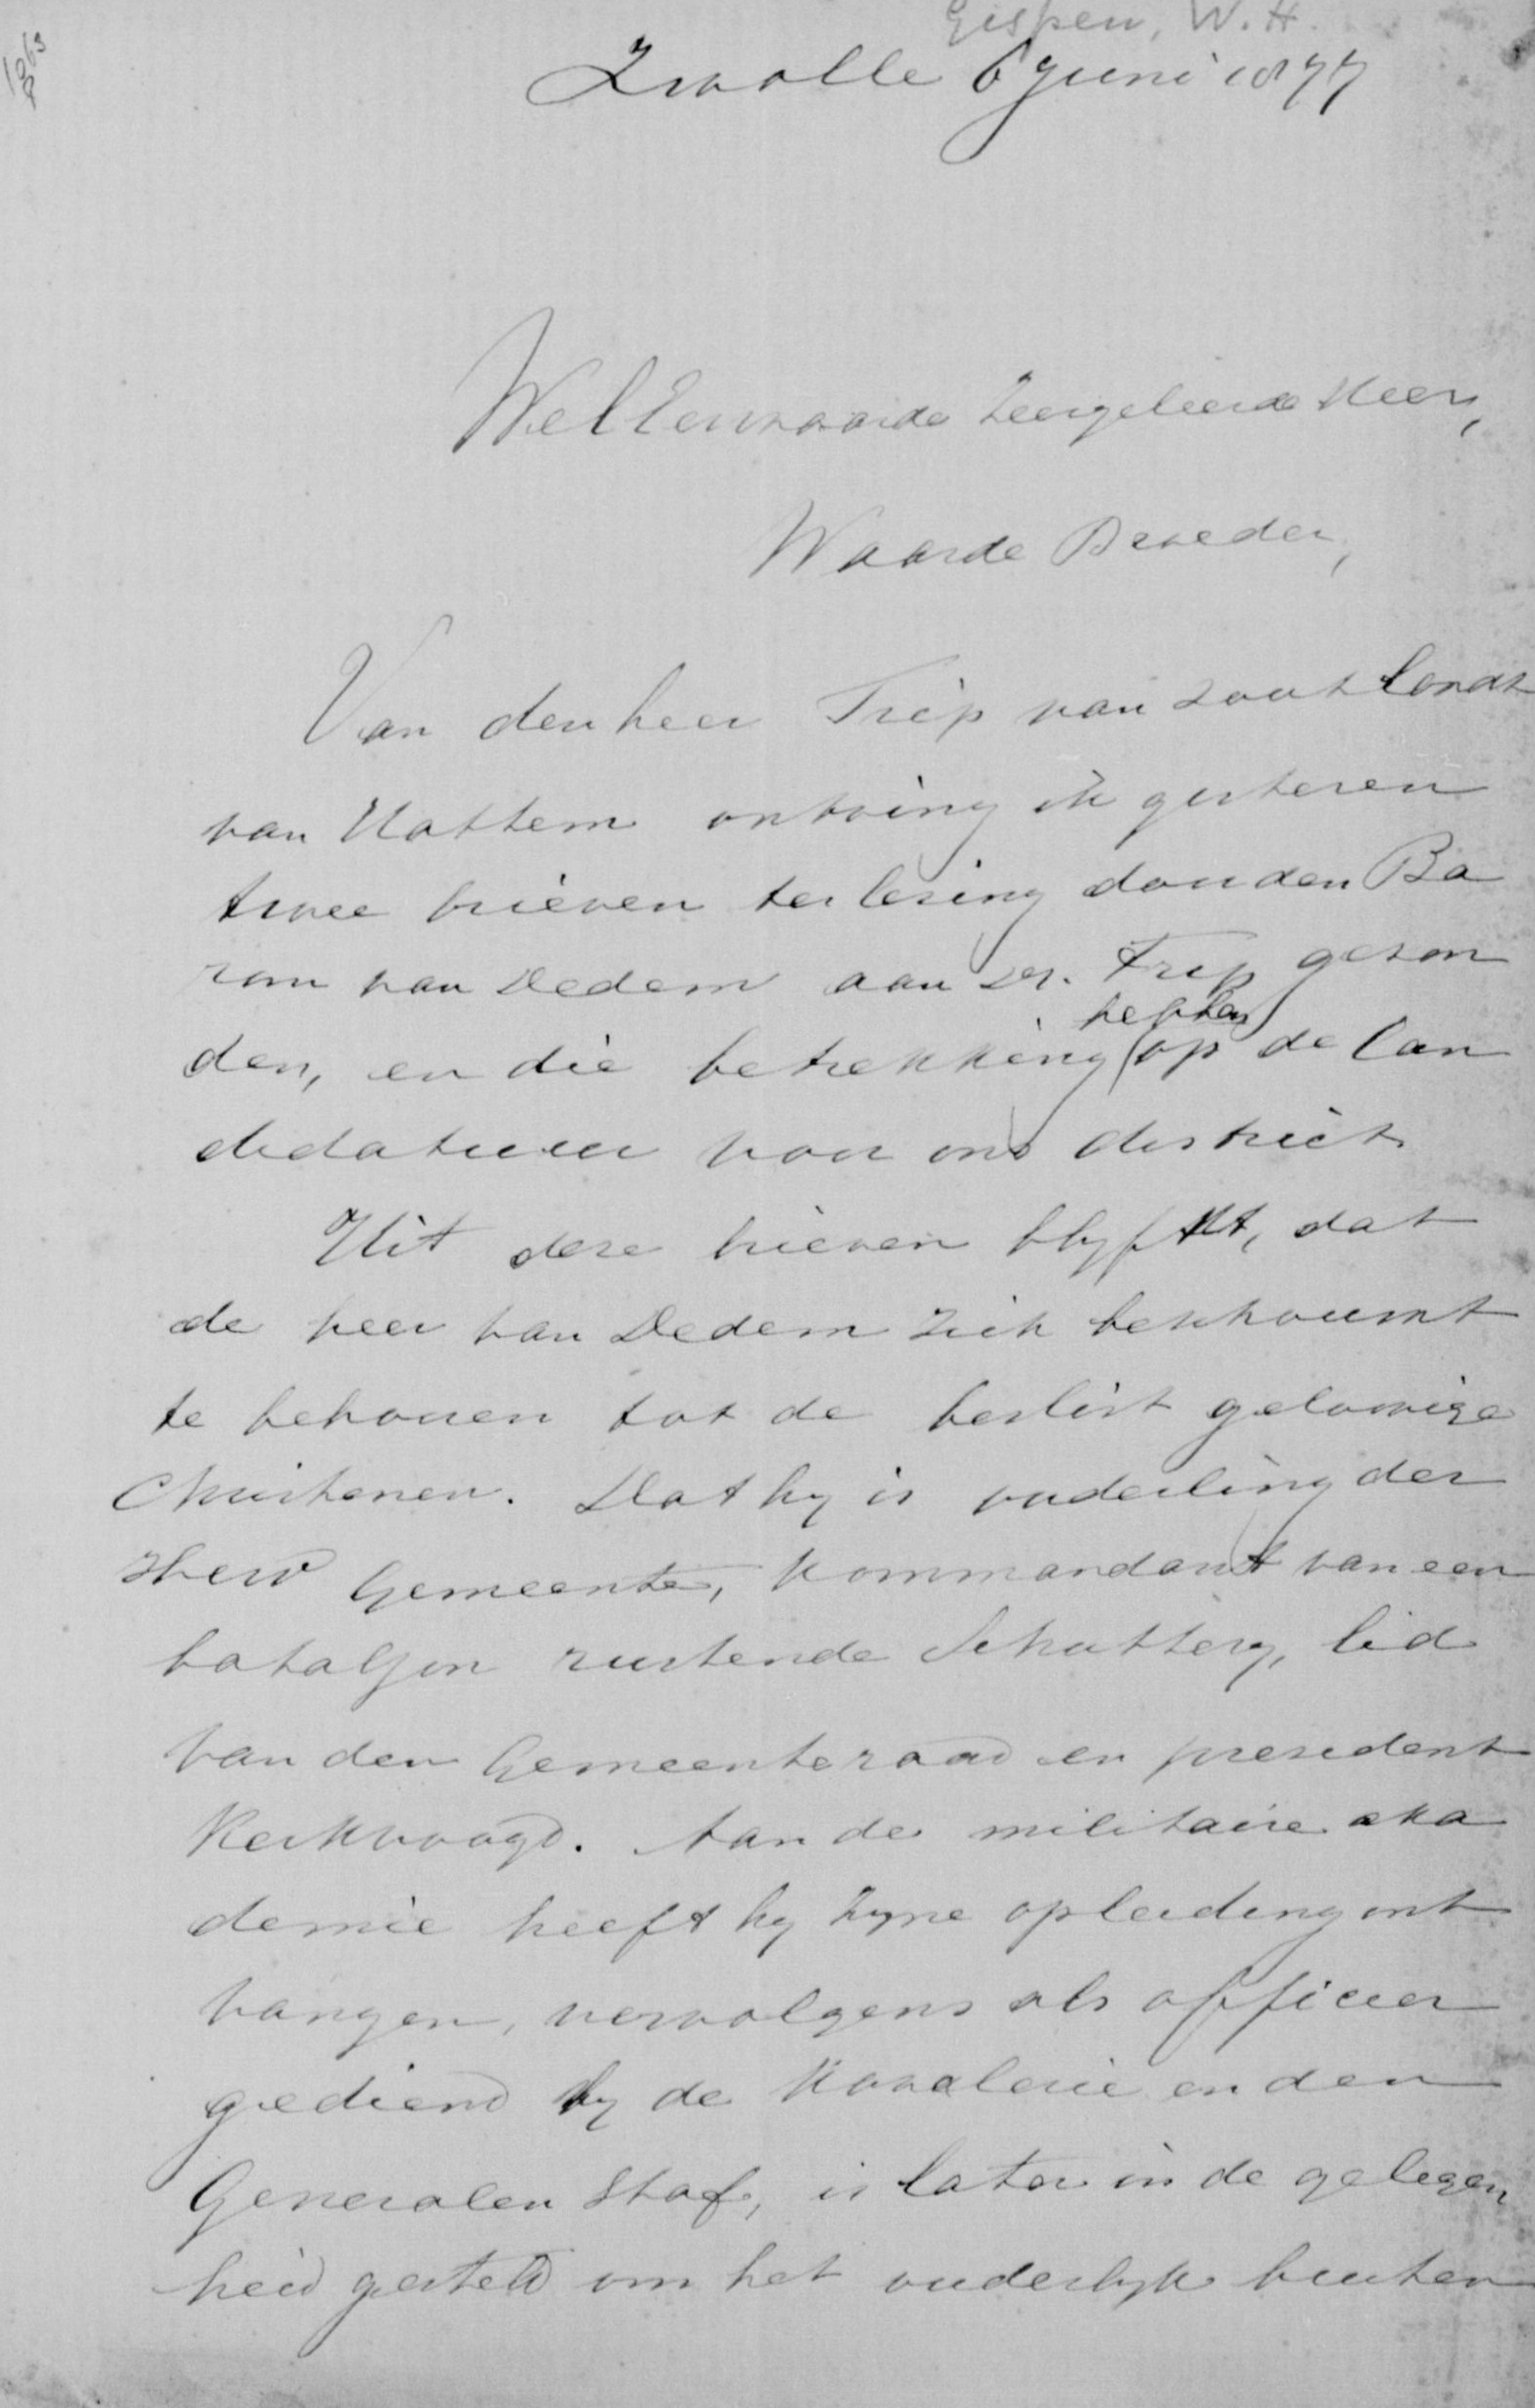 Gispen, W. H.
Zwolle 6 Juni 1877
WelEerwaarde Zeergeleerde Heer,
Waarde Broeder,
Van den heer Trip van Zoutlandt
van Hattem ontving ik gisteren
twee brieven ter lezing door den Ba
ron van Dedem aan Dr. Trip gezon
hebben
den, en die betrekking op de Can
didatuur voor ons district
Uit deze brieven blykt, dat
de heer van Dedem zich bekkoumt
te behooren tot de beslist geloovige
Christenen. Dat hy is ouderling der
Herv Gemeente, Kommandant van een
bataljon rustende Schuttery, lid
van den Gemeenteraad en president
Kerkvoogd. Aan de militaire aka
demie heeft hy zyne opleiding ont
vangen, vervolgens als officier
gediend by de Kavalerie en den
Generalen Staf, is later in de gelegen
heid gesteld om het ouderlyk buiten